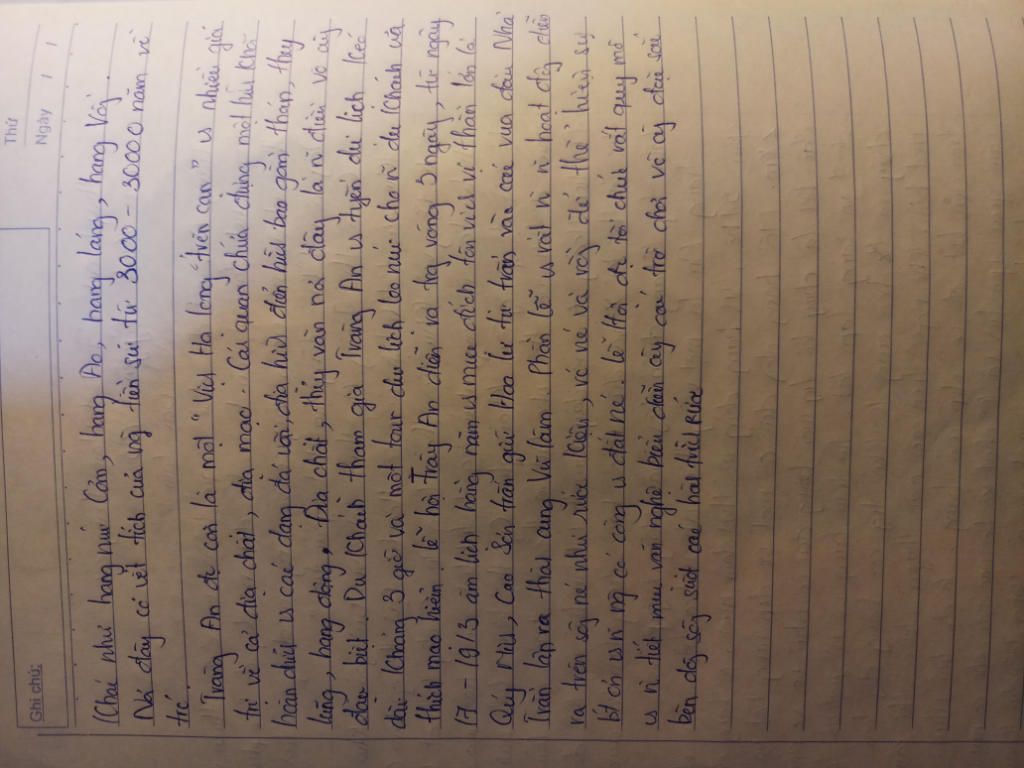 Thứ
Ngày / /
Ghi chú:
Khác như hang núi Cản, hang Ao, hang láng, hang Vồi.
Nơi đây có vết tích của ng tiền sử từ 3000 - 30000 năm về
trc.
Tràng An đc còn là một "Vịnh Hạ long trên cạn" vs nhiều giá
trị về cả địa chất, địa mạo. Cảnh quan chứa đựng một hthái Khá
hoàn chỉnh vs các dạng đá vôi, địa hình điển hình bao gồm tháp, thy
lũng, hang động. Địa chất, thủy văn nơi đây là n điều vô cùng
đặc biệt. Du Khách tham gia Tràng An vs tuyến du lịch Kéo
dài Khoảng 3 giờ và một tour du lịch leo núi cho n du Khách ưa
thích mạo hiểm. lễ hội Tràng An diễn ra trg vòng 3 ngày, từ ngày
17 - 19/3 âm lịch hàng năm vs mục đích tôn vinh vị thần lớn là
Quý Minh, Cao Sơn trấn giữ Hoa lư tứ trấn và các vua đời Nhà
Trần lập ra thái cung Vũ lâm. Phần lễ vs rất n n hoạt động diễn
ra trên sông nc như rước Kiệu, về nc và rồng để thể hiện sự
bt ơn vs n ng có công vs đất nc. lễ Hội đc tổ chức với quy mô
vs n tiết mục văn nghệ biểu diễn cùng các trò chơi vô cùng đặc sắc
bên dòng sông suốt các hàn